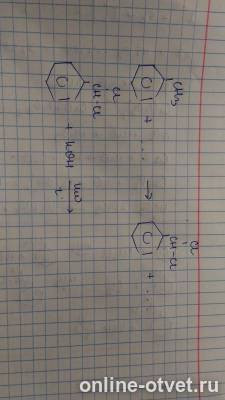 CH₃ + ... → CH-Cl + ...
Cl
Cl
CH-Cl + KOH →
online-otvet.ru